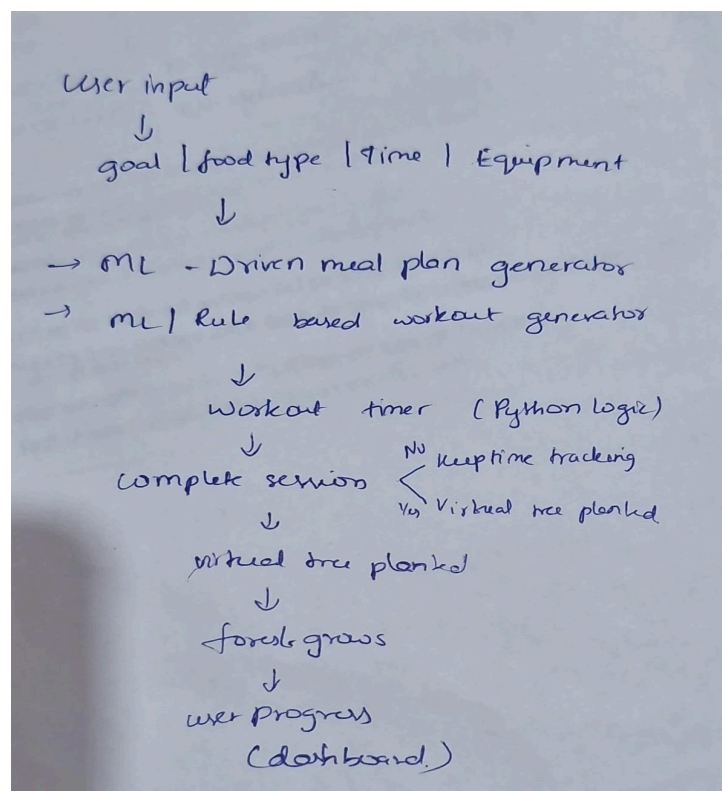 User input
↓
goal | food type | Time | Equipment
↓
→ ML - Driven meal plan generator
→ ML | Rule based workout generator
↓
Workout timer (Python logic)
↓
complete session < No Keep time tracking
Yes Virtual tree planted
↓
virtual tree planted
↓
forest grows
↓
user progress
(dashboard.)